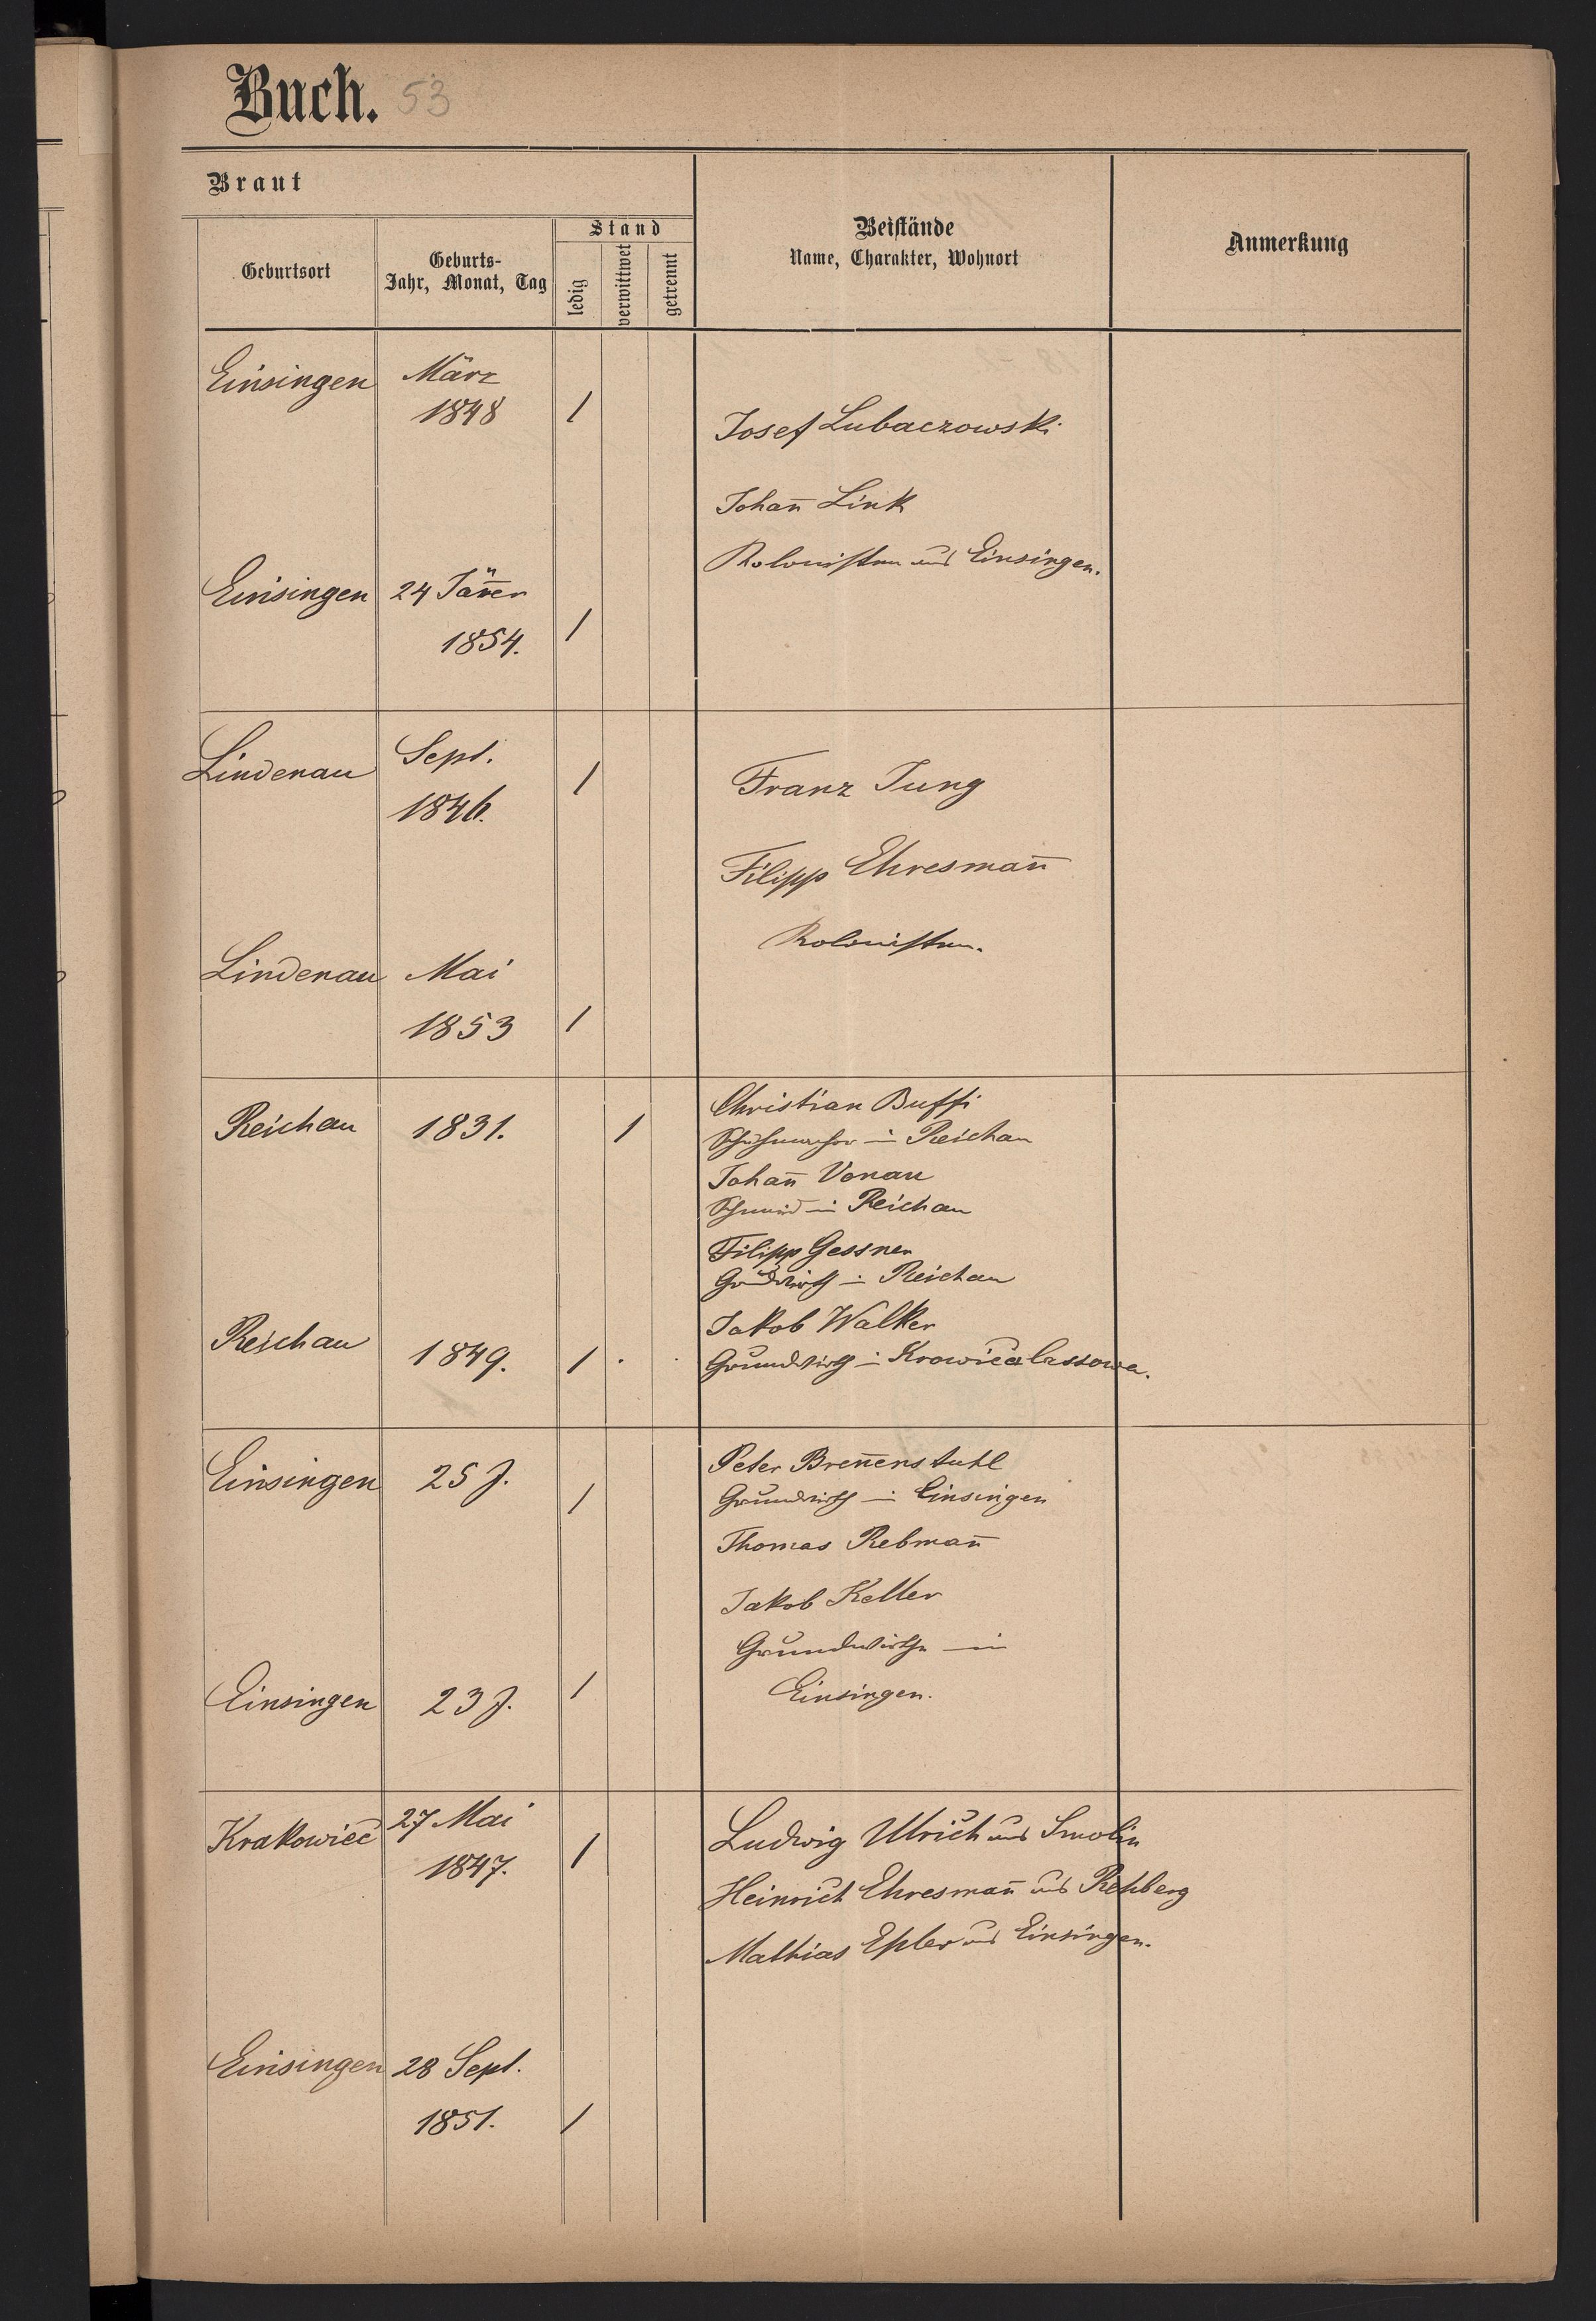 Buch. 53
Braut
Geburtsort
Geburts-
Jahr, Monat, Tag
Stand
ledig
verwittwet
getrennt
Beistände
Name, Charakter, Wohnort
Anmerkung
Einsingen März
1848 /
Josef Lubaczowski
Johan̄ Link
Kolonisten aus Einsingen.
Einsingen 24 Jän̄er
1854. /
Lindenau Sept.
1846. /
Franz Jung
Filipp Ehresman̄
Kolonisten.
Lindenau Mai
1853 /
Reichau 1831. /
Christian Buffi
Schuhmacher in Reichau
Johan̄ Vonau
Schmid in Reichau
Filipp Gessner
Grundwirth in Reichau
Jakob Walker
Reichau 1849. /
Grundwirth in Krowica lassowa.
Einsingen 25 J. /
Peter Bren̄enstuhl
Grundwirth in Einsingen
Thomas Rebman̄
Jakob Keller
Grundwirthe in
Einsingen.
Einsingen 23 J. /
Krakowiec 27 Mai
1847. /
Ludwig Ulrich aus Smolin
Heinrich Ehresman̄ aus Rehberg
Mathias Epler aus Einsingen.
Einsingen 28 Sept.
1851. /